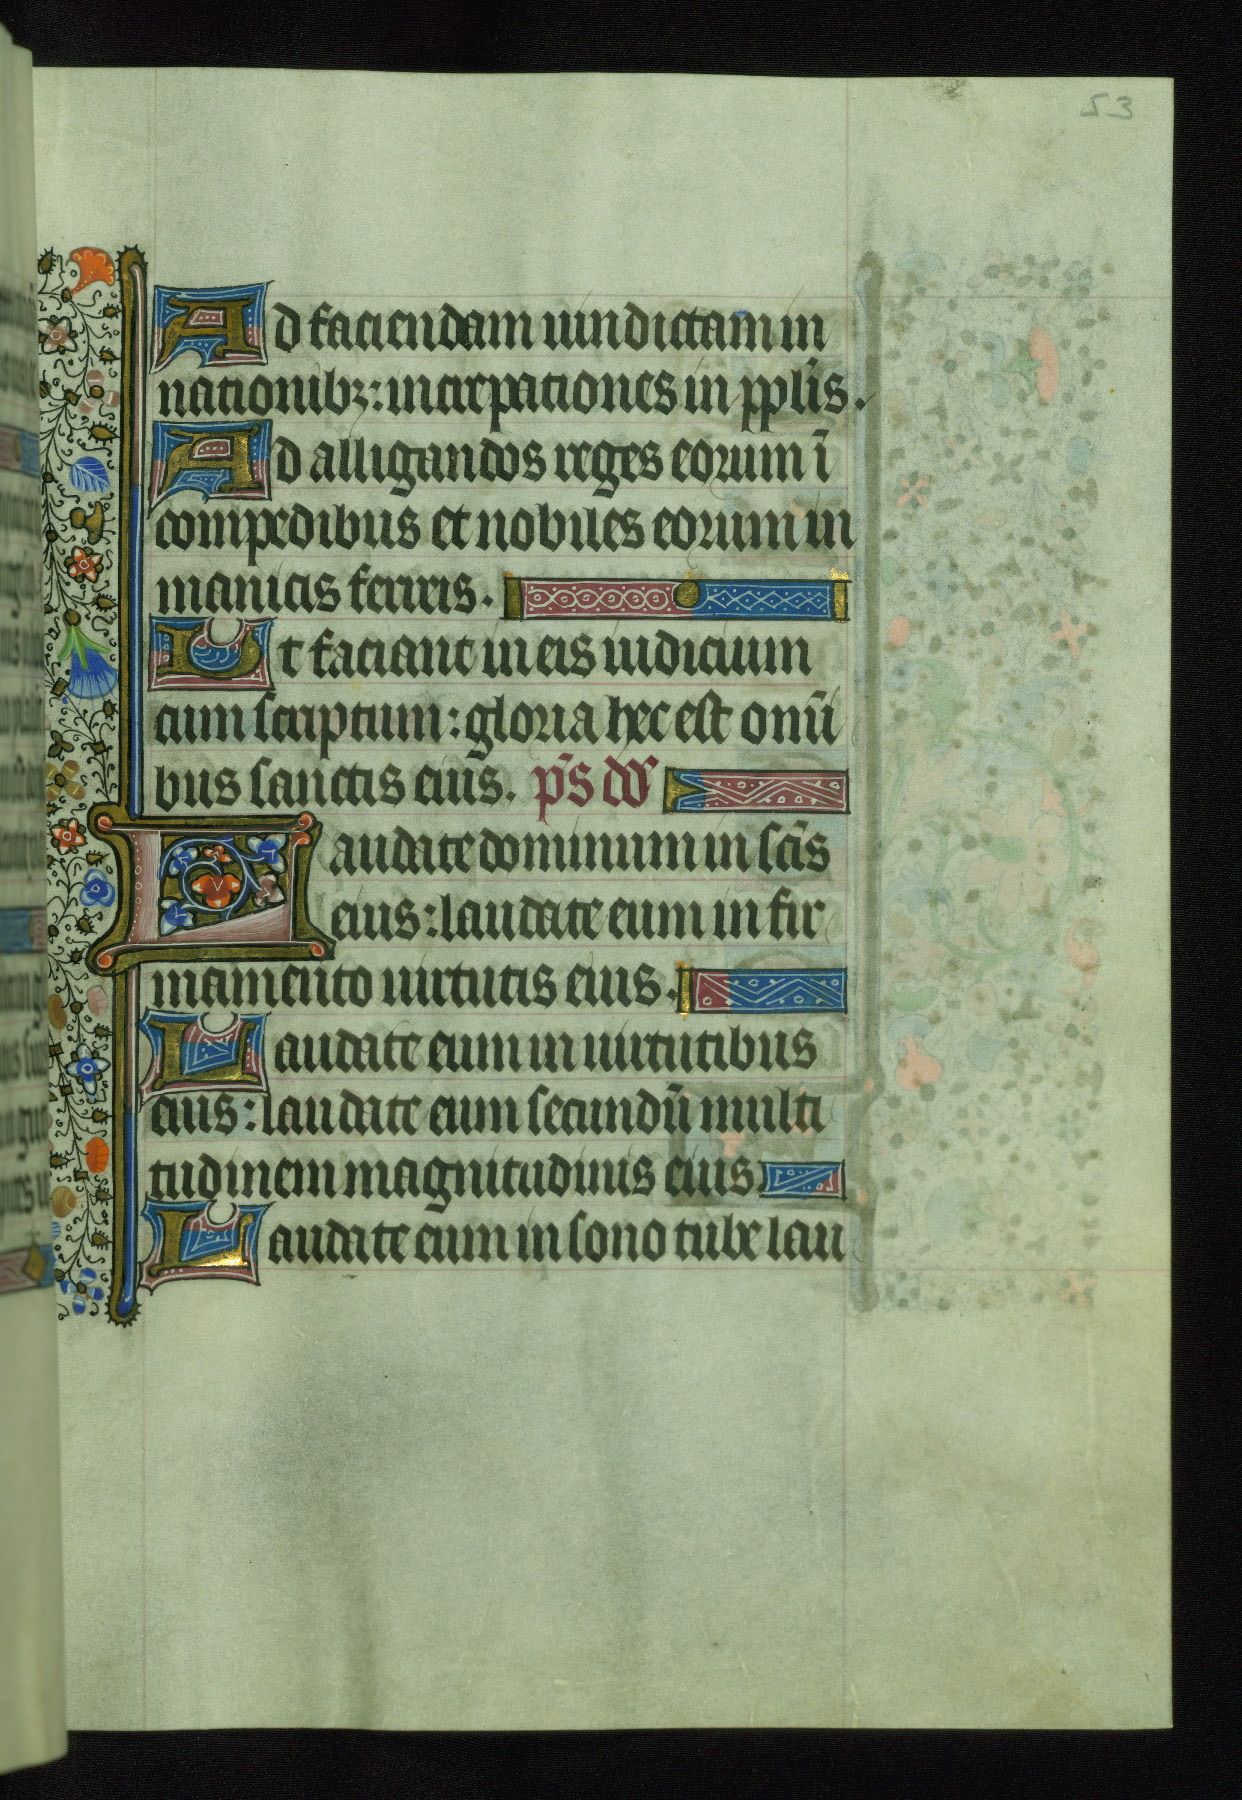 53
Ad faciendam uindictam in
nationibꝫ: increpationes in ppl̄is.
Ad alligandos reges eorum ī
compedibus et nobiles eorum in
manicis ferreis.
Et faciant in eis iudicium
cum scriptum: gloria hec est om̄i
bus sanctis eius. p̄s dd̄
Laudate dominum in sc̄is
eius: laudate eum in fir
mamento uirtutis eius.
Laudate eum in uirtutibus
eius: laudate eum secundū multi
tudinem magnitudinis eius.
Laudate eum in sono tube lau